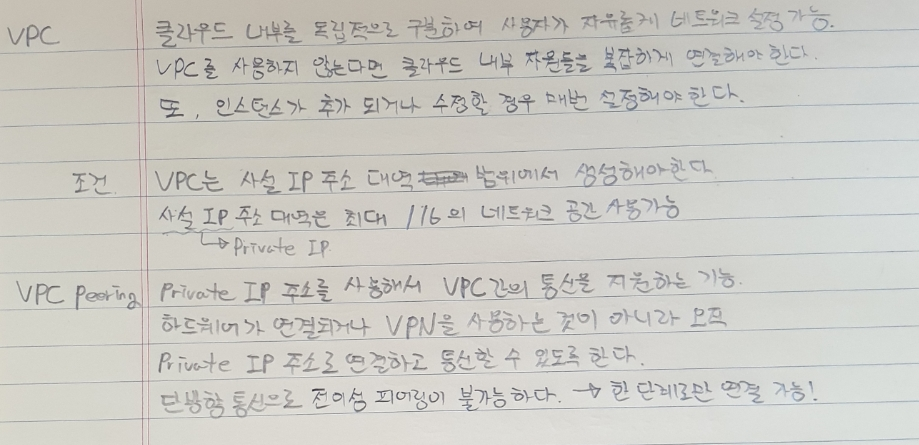 VPC 클라우드 내부를 독립적으로 구분하여 사용자가 자유롭게 네트워크 설정 가능.
VPC를 사용하지 않는다면 클라우드 내부 자원들을 복잡하게 연결해야 한다.
또, 인스턴스가 추가 되거나 수정할 경우 매번 설정해야 한다.
조건 VPC는 사설 IP 주소 대역 범위에서 생성해야한다
사설 IP 주소 대역은 최대 /16의 네트워크 공간 사용가능
↳ Private IP
VPC Peering Private IP 주소를 사용해서 VPC간의 통신을 지원하는 기능.
하드웨어가 연결되거나 VPN을 사용하는 것이 아니라 오직
Private IP 주소로 연결하고 통신할 수 있도록 한다.
단방향 통신으로 전이성 피어링이 불가능하다. → 한 단계로만 연결 가능!